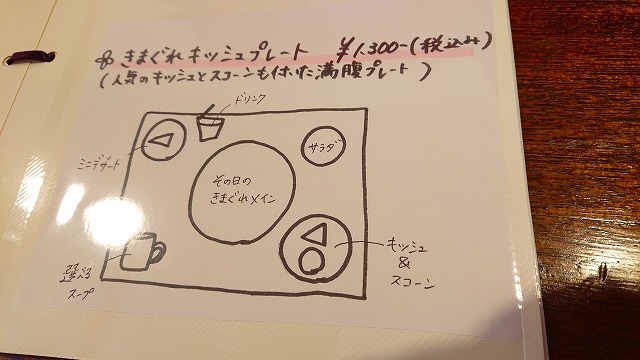 & きまぐれキッシュプレート ¥1,300-(税込み)
(人気のキッシュとスコーンも付いた満腹プレート)
ドリンク
ミニデザート
サラダ
その日の
きまぐれメイン
キッシュ
&
スコーン
選べる
スープ